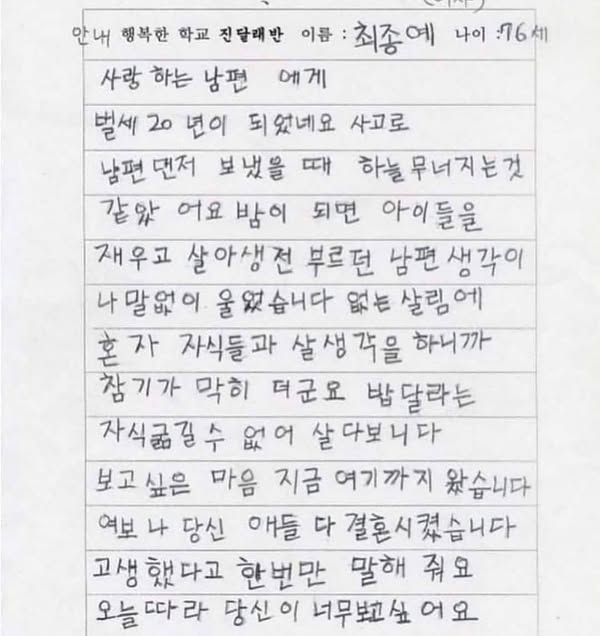 안내 행복한 학교 진달래반 이름 : 최종예 나이 : 76세
사랑하는 남편 에게
벌세 20년이 되었네요 사고로
남편 맨저 보냈을 때 하늘무너지는것
같았 어요 밤이 되면 아이들을
재우고 살아생전 부르던 남편 생각이
나 말없이 울었습니다 없는 살림에
혼자 자식들과 살생각을 하니까
참기가 막히 더군요 밥달라는
자식굶길수 없어 살다보니다
보고싶은 마음 지금 여기까지 왔습니다
여보 나 당신 애들 다 결혼시켰습니다
고생했다고 한번만 말해 줘요
오늘따라 당신이 너무보고싶어요